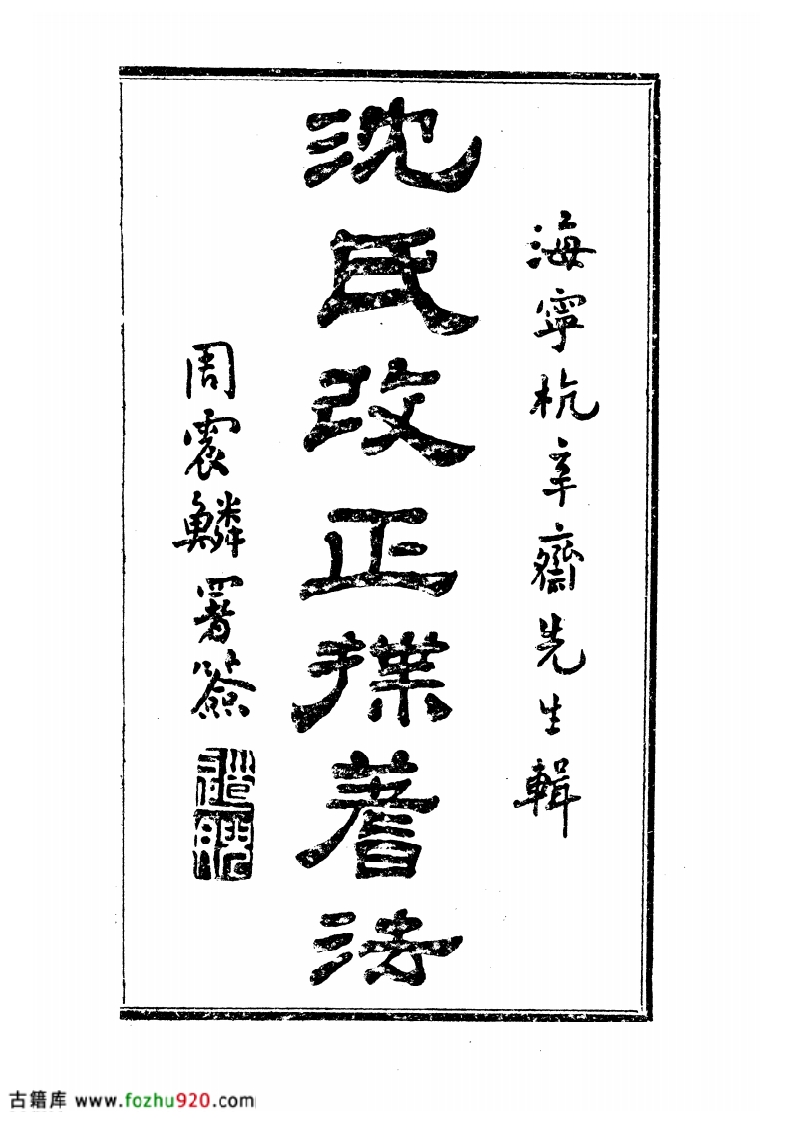 海寧杭辛齋先生輯
沈氏改正揲蓍法
周震鱗署簽
古籍库 www.fozhu920.com